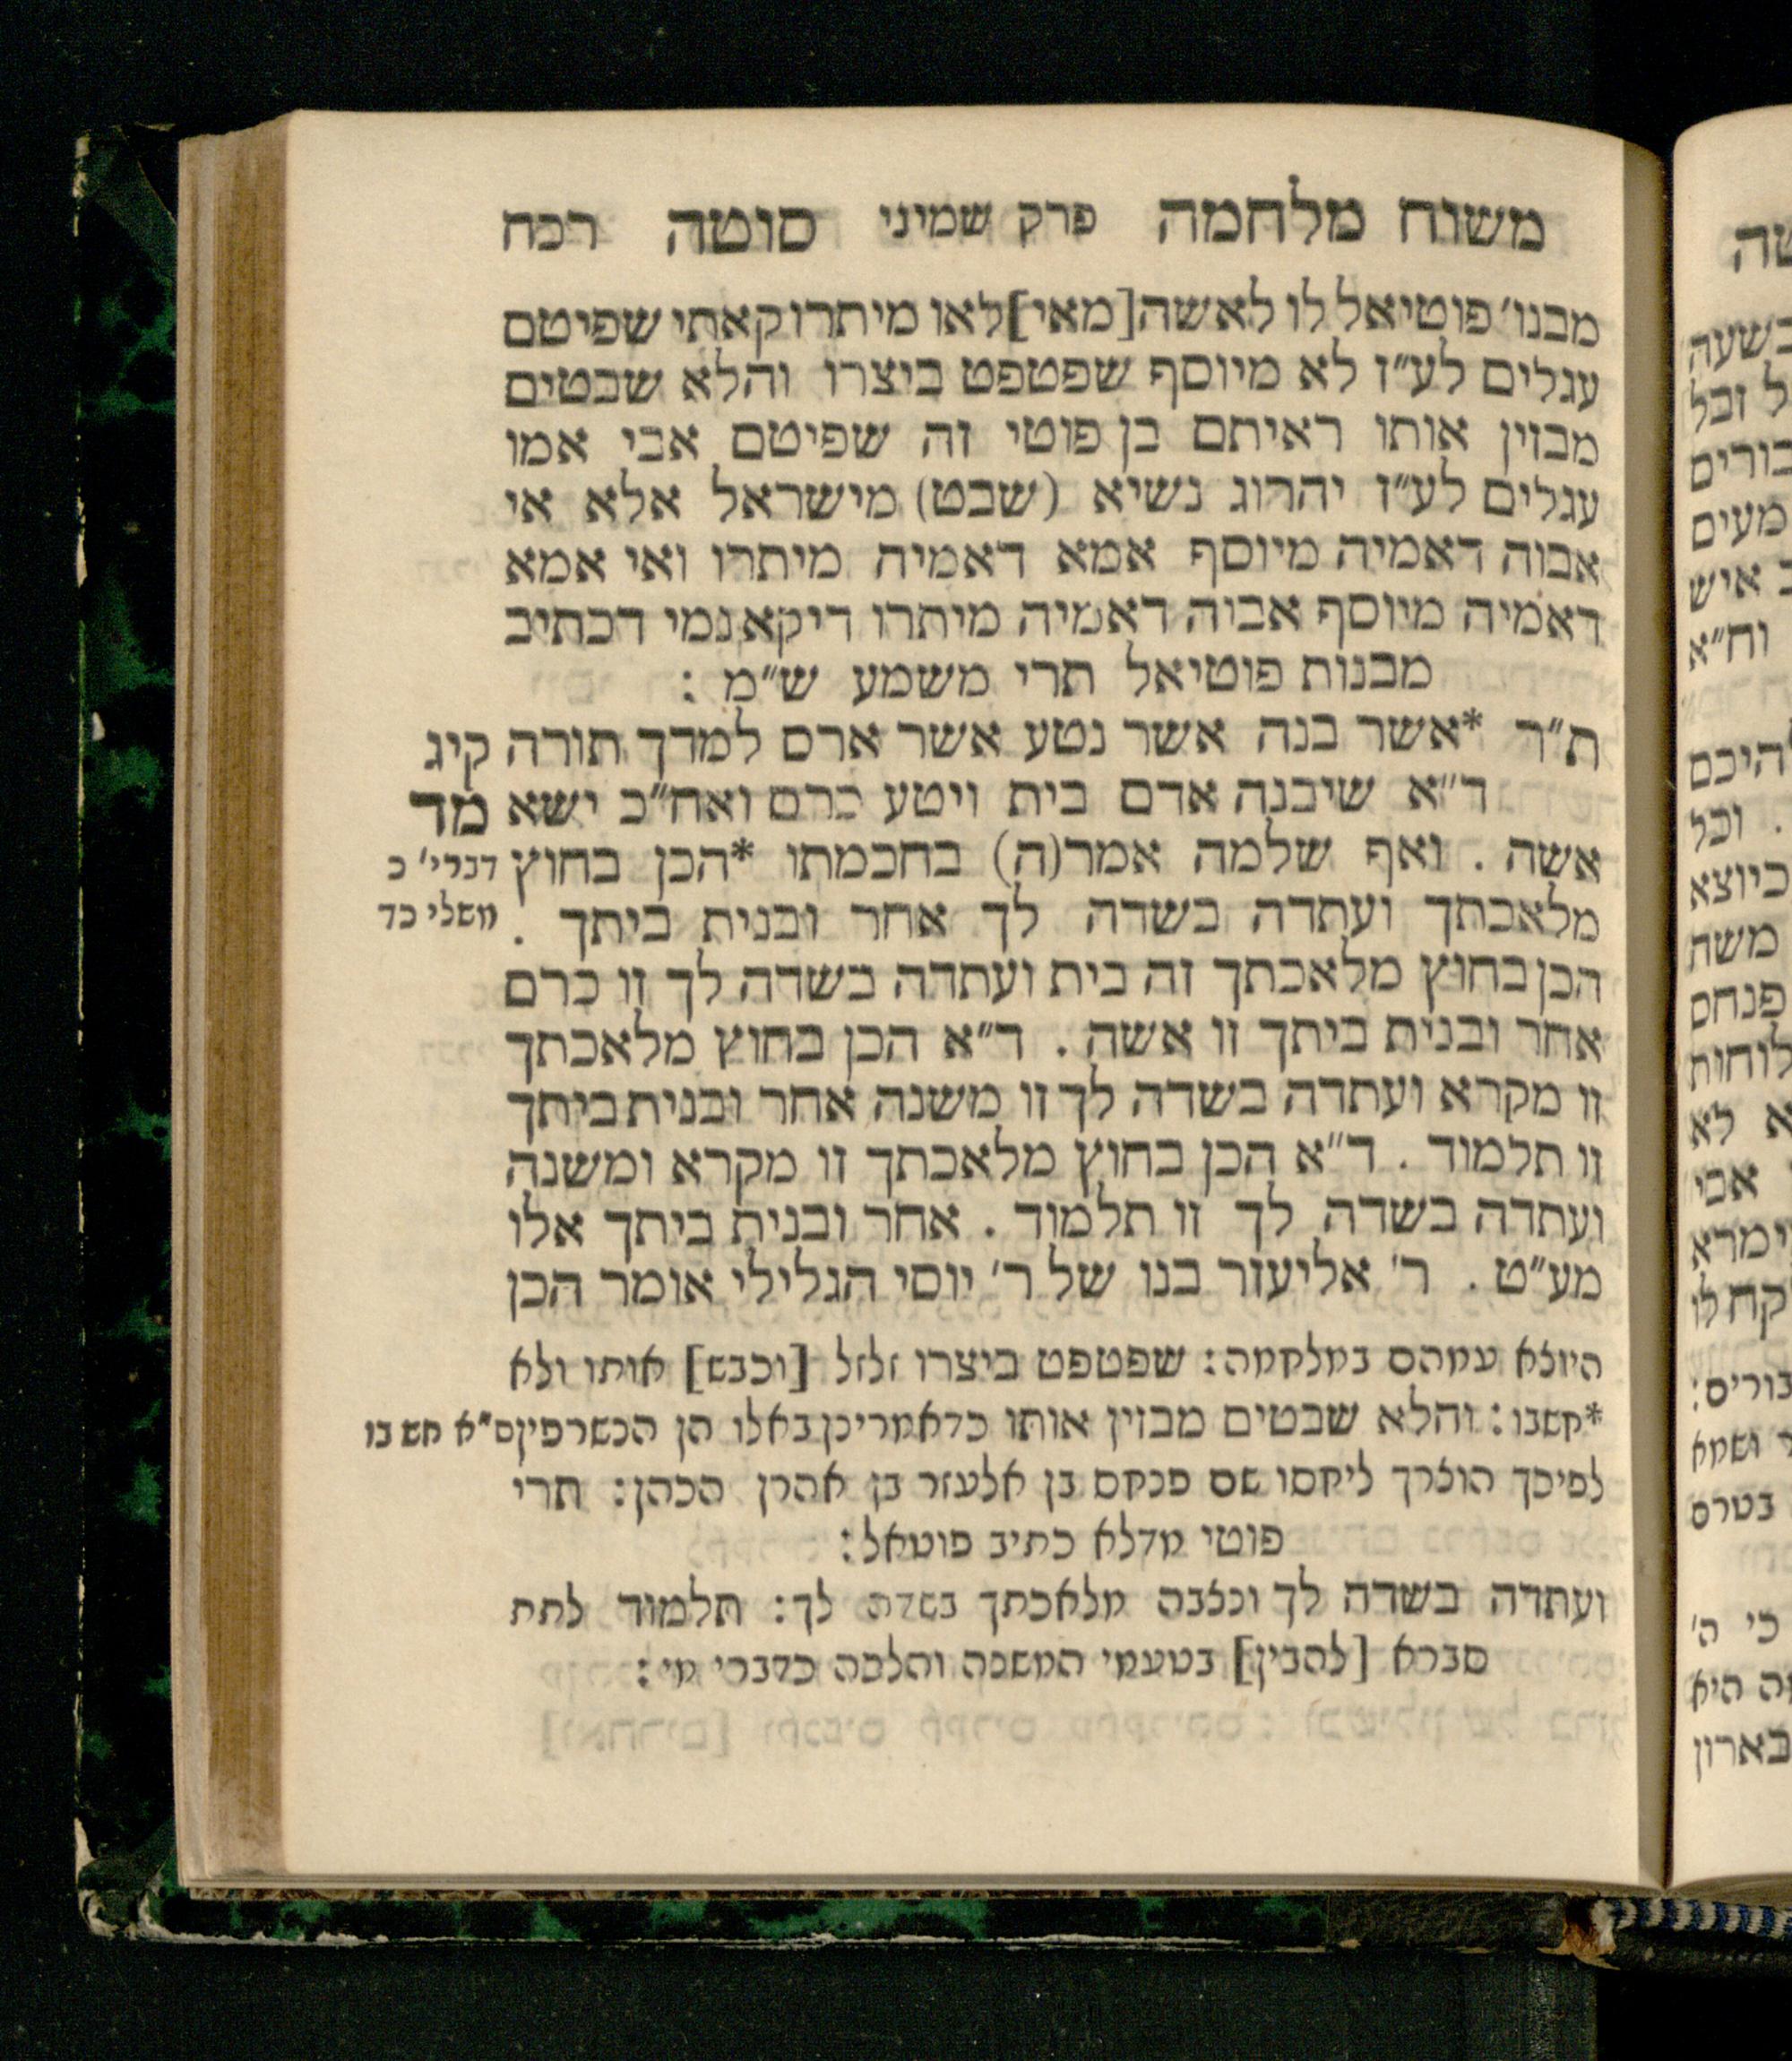 משוח מלחמה פרק שמיני סוטה רכח
מבנו׳ פוטיאל לו לאשה [מאי] לאו מיתרו קאתי שפיטם
עגלים לע״ז לא מיוסף שפטפט ביצרו והלא שבטים
מבזין אותו ראיתם בן פוטי זה שפיטם אבי אמו
עגלים לע״ז יהרוג נשיא (שבט) מישראל אלא אי
אבוה דאמיה מיוסף אמא דאמיה מיתרו ואי אמא
דאמיה מיוסף אבוה דאמיה מיתרו דיקא נמי דכתיב
מבנות פוטיאל תרי משמע ש״מ :
ת״ר *אשר בנה אשר נטע אשר ארס למדך תורה קיג
ד״א שיבנה אדם בית ויטע כרם ואח״כ ישא מד
אשה . ואף שלמה אמר(ה) בחכמתו *הכן בחוץ דברי׳ כ
מלאכתך ועתדה בשדה לך אחר ובנית ביתך . משלי כד
הכן בחוץ מלאכתך זה בית ועתדה בשדה לך זו כרם
אחר ובנית ביתך זו אשה . ד״א הכן בחוץ מלאכתך
זו מקרא ועתדה בשדה לך זו משנה אחר ובנית ביתך
זו תלמוד . ד״א הכן בחוץ מלאכתך זו מקרא ומשנה
ועתדה בשדה לך זו תלמוד . אחר ובנית ביתך אלו
מע״ט . ר׳ אליעזר בנו של ר׳ יוסי הגלילי אומר הכן
היוצא עמהם במלחמה: שפטפט ביצרו זלזל [וכבש] אותו ולא
*חשבו: והלא שבטים מבזין אותו כדאמרינן באלו הן הנשרפין ס״א חש בו
לפיכך הוצרך ליחסו שם פנחס בן אלעזר בן אהרן הכהן: תרי
פוטי מדלא כתיב פוטאל:
ועתדה בשדה לך ונצבה מלאכתך בשדה לך: תלמוד לתת
סברא [להבין] בטעמי המשנה והלכה כדברי מי: